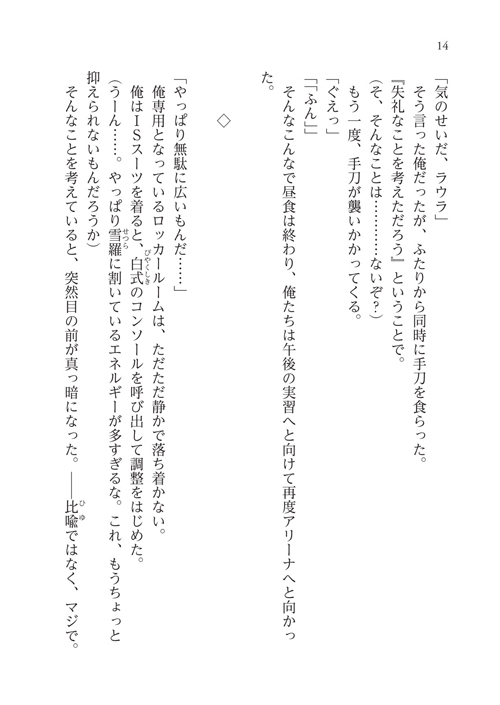 14
「気のせいだ、ラウラ」
そう言った俺だったが、ふたりから同時に手刀を食らった。
『失礼なことを考えただろう』ということで。
(そ、そんなことは…………ないぞ?)
もう一度、手刀が襲いかかってくる。
「ぐえっ」
「「ふん」」
そんなこんなで昼食は終わり、俺たちは午後の実習へと向けて再度アリーナへと向かっ
た。
◇
「やっぱり無駄に広いもんだ……」
俺専用となっているロッカールームは、ただただ静かで落ち着かない。
俺はISスーツを着ると、白式のコンソールを呼び出して調整をはじめた。
びやくしき
(うーん……。やっぱり雪羅に割いているエネルギーが多すぎるな。これ、もうちょっと
せつら
抑えられないもんだろうか)
そんなことを考えていると、突然目の前が真っ暗になった。――比喩ではなく、マジで。
ひゆ